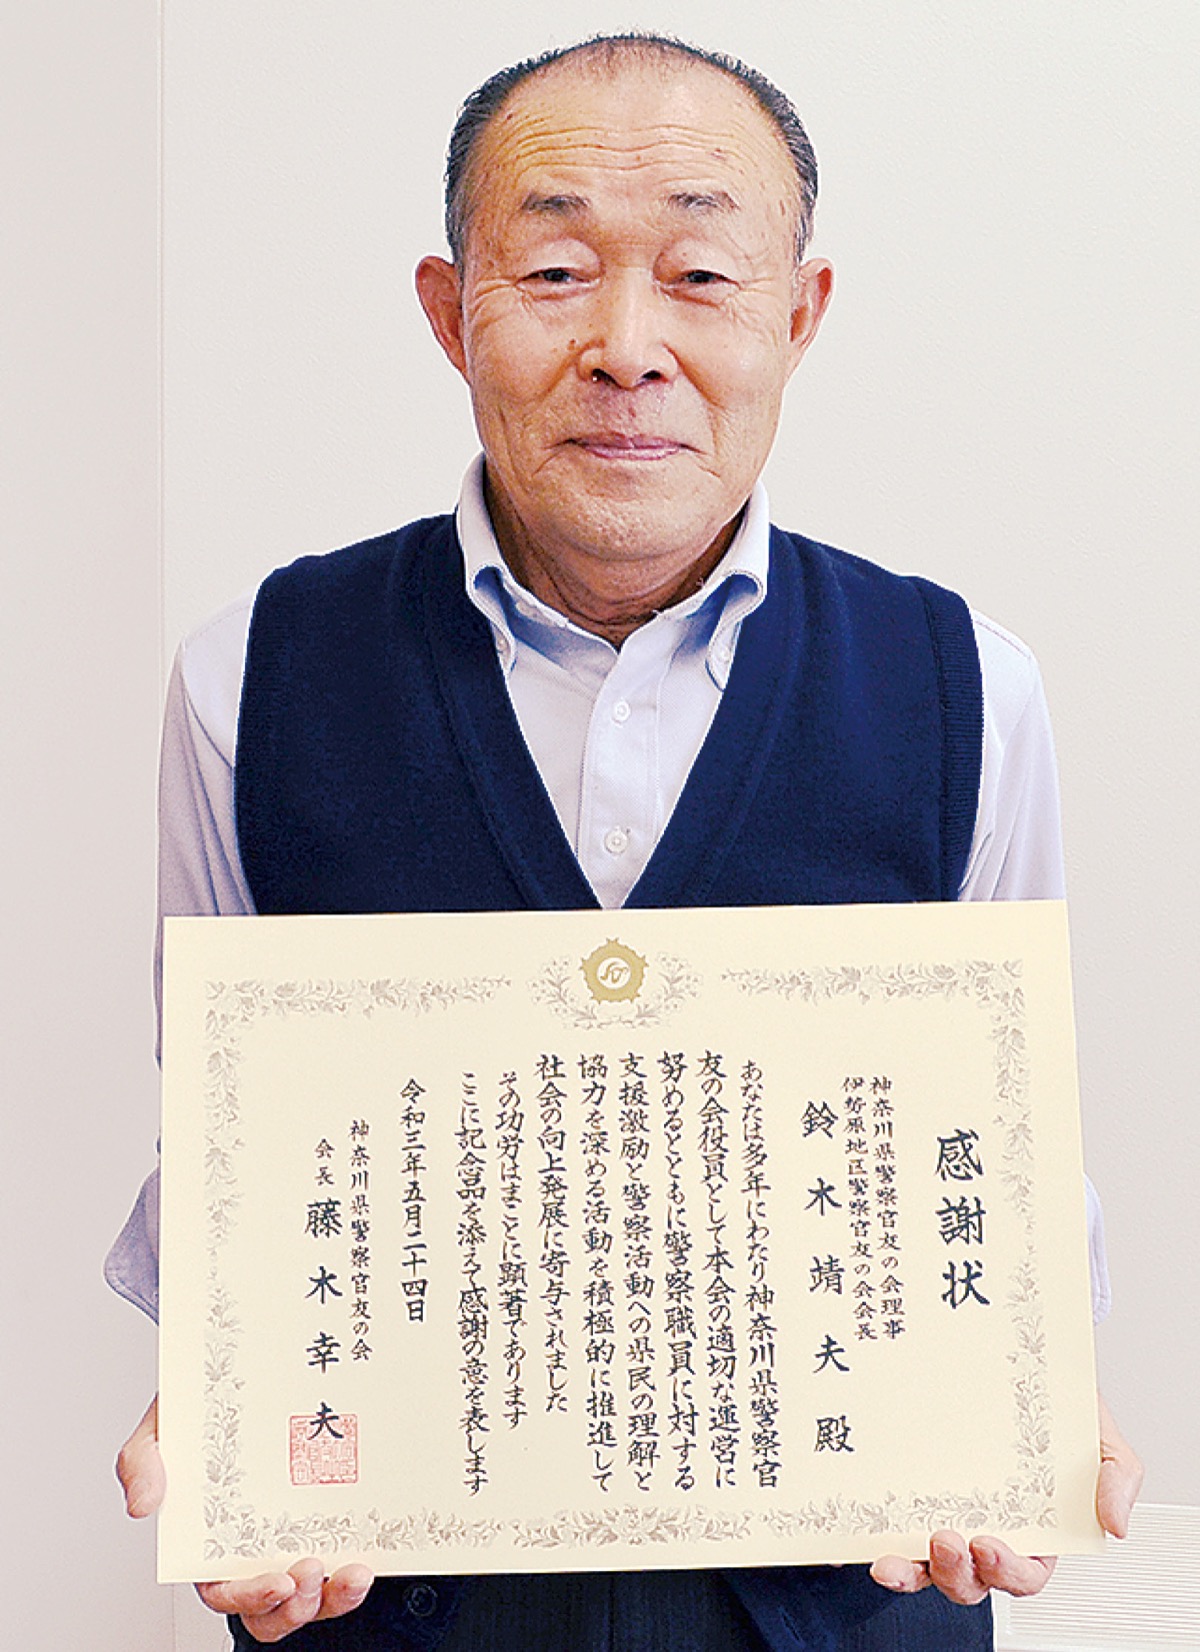 感謝状
神奈川県警察官友の会理事
伊勢原地区警察官友の会会長
鈴木靖夫殿
あなたは多年にわたり神奈川県警察官
友の会役員として本会の適切な運営に
努めるとともに警察職員に対する
支援激励と警察活動への県民の理解と
協力を深める活動を積極的に推進して
社会の向上発展に寄与されました
その功労はまことに顕著であります
ここに記念品を添えて感謝の意を表します
令和三年五月二十四日
神奈川県警察官友の会
会長 藤木幸夫